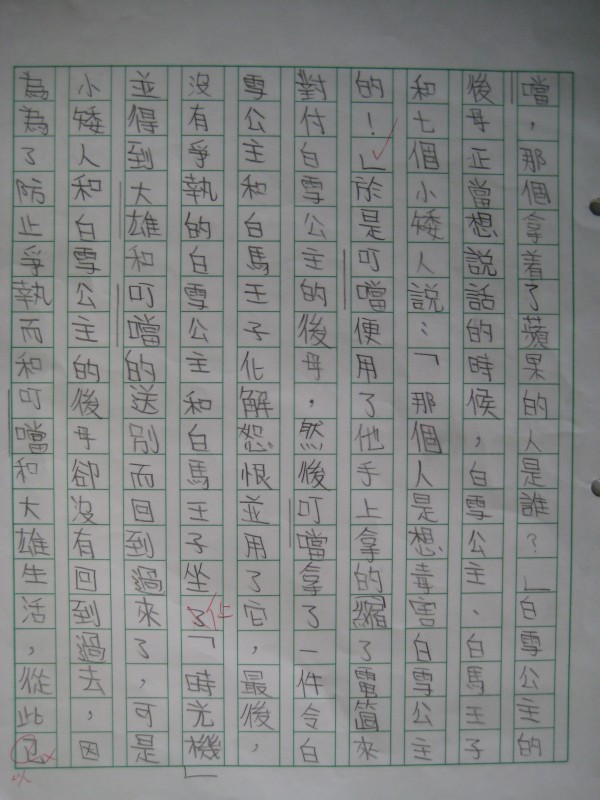 噹，那個拿着了蘋果的人是誰？」白雪公主的
後母正當想說話的時候，白雪公主、白馬王子
和七個小矮人說：「那個人是想毒害白雪公主
的！」於是叮噹便用了他手上拿的縮了電筒來
對付白雪公主的後母，然後叮噹拿了一件令白
雪公主和白馬王子化解怨恨並用了它，最後，
沒有爭執的白雪公主和白馬王子坐了「時光機」
並得到大雄和叮噹的送別而回到過來了，可是
小矮人和白雪公主的後母卻沒有回到過去，因
為為了防止爭執而和叮噹和大雄生活，從此